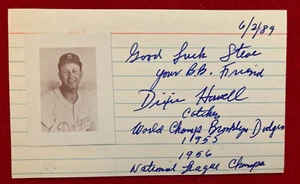 6/2/89
Good Luck Steve
your B.B. Friend
Dixie Howell
Catcher
World Champs Brooklyn Dodgers
1955
1956
National League Champs
B
Dodgers